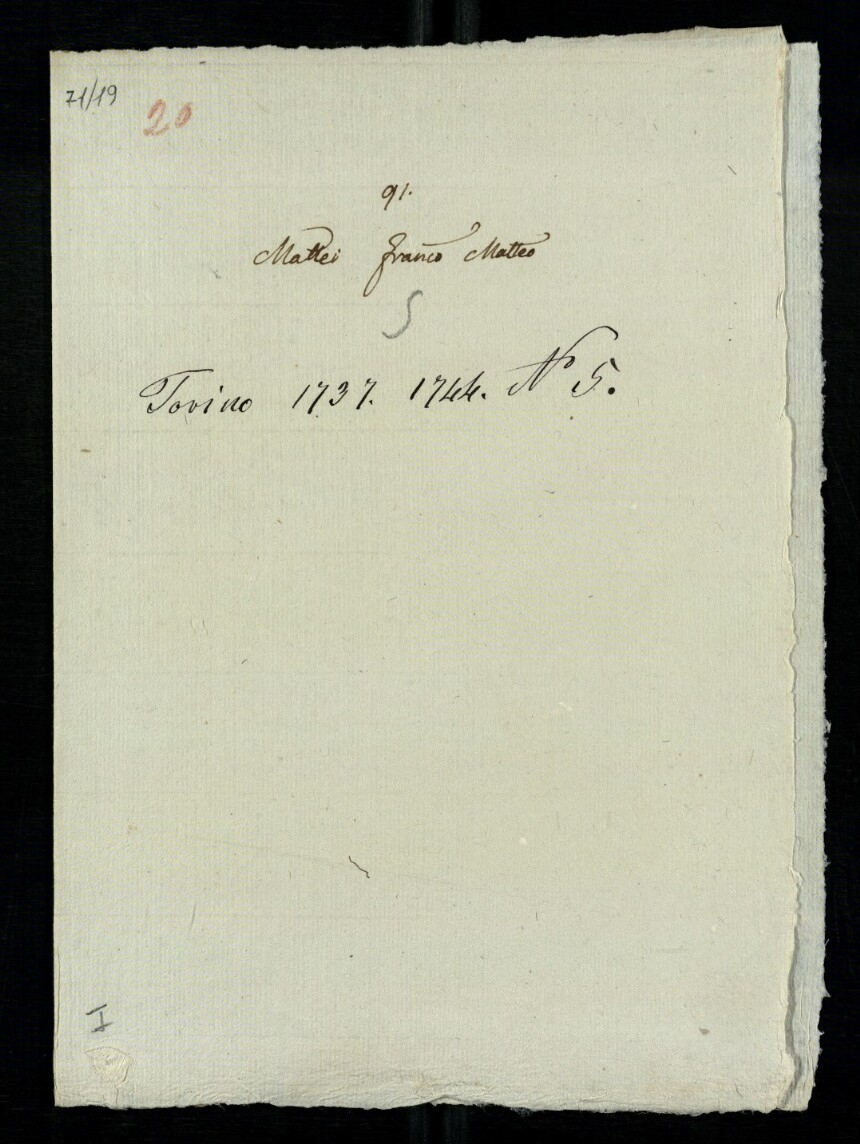 71/19
20
91.
Mattei Franco Matteo
5
Torino 1737. 1744. No 5.
I